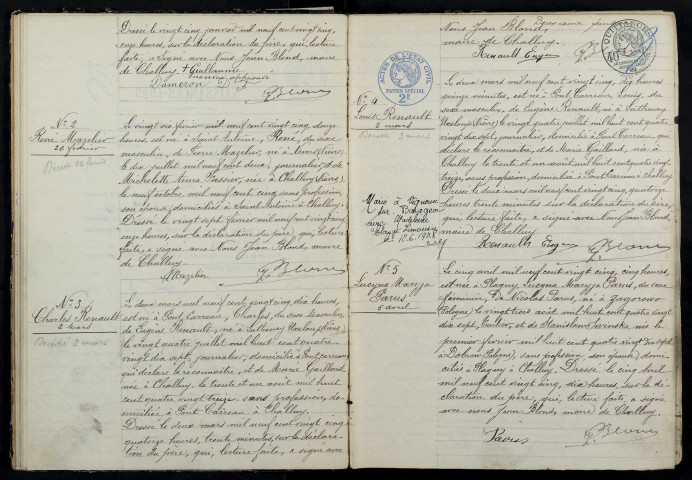 Dressé le vingt cinq janvier mil neuf cent vingt cinq,
onze heures, sur la déclaration du père, qui, lecture
faite, a signé avec Nous Jean Blond, maire
de Challuy.
Dameron
Blond
N° 2
René Mazelier
26 février
Décédé
Le vingt six février mil neuf cent vingt cinq, onze
heures, est né à Saint Antoine, René, du sexe
masculin, de Pierre Mazelier, né à Nevers (Nièvre)
le dix juillet mil neuf cent deux, journalier, et de
Michelette Anna Tessier, née à Challuy (Nièvre)
le neuf octobre mil neuf cent cinq sans profession,
son épouse, domiciliés à Saint Antoine à Challuy.
Dressé le vingt sept février mil neuf cent vingt cinq
onze heures, sur la déclaration du père, qui, lecture
faite, a signé avec Nous Jean Blond, maire
de Challuy.
Mazelier
Blond
N° 3
Charles Renault
2 mars
Décédé 2 mars
Le deux mars mil neuf cent vingt cinq dix heures,
est né à Pont Carreau, Charles, du sexe masculin,
de Eugène Renault, né à Luthenay Uxeloup (Nièvre)
le vingt quatre juillet mil huit cent quatre
vingt dix sept, journalier, domicilié à Pont carreau
qui déclare le reconnaître, et de Marie Gaillard,
née à Challuy, le trente et un août mil huit
cent quatre vingt treize, sans profession, do-
miciliée à Pont Carreau à Challuy.
Dressé le deux mars mil neuf cent vingt cinq
quatorze heures, trente minutes, sur la déclara-
tion du père, qui, lecture faite, a signé avec
Nous Jean Blond,
maire de Challuy.
Renault Eug
Blond
ACTES DE L'ETAT CIVIL
PAPIER SPÉCIAL
2F
QUITTANCES
N° 4
Louis Renault
2 mars
Décédé 3 mars
Le deux mars mil neuf cent vingt cinq, dix heures
quinze minutes, est né à Pont Carreau, Louis, du
sexe masculin, de Eugène Renault, né à Luthenay
Uxeloup (Nièvre) le vingt quatre juillet mil huit cent quatre
vingt dix sept, journalier, domicilié à Pont Carreau, qui
déclare le reconnaître, et de Marie Gaillard, née à
Challuy, le trente et un août mil huit cent quatre vingt
treize, sans profession, domiciliée à Pont Carreau à Challuy.
Dressé le deux mars mil neuf cent vingt cinq, quatorze
heures trente minutes sur la déclaration du père,
qui, lecture faite, a signé avec Nous Jean Blond,
maire de Challuy.
Renault Eug
Blond
Marié à
sur
avec
le 12.6.19
N° 5
Lucyna Maryja
Parus
5 avril
Le cinq avril mil neuf cent vingt cinq, cinq heures,
est née à Plagny, Lucyna Maryja Parus, du sexe
féminin, de Nicolas Parus, né à Zagorowo
(Pologne) le vingt trois août mil huit cent quatre vingt
dix sept, et de Stanislawa née le
premier février mil huit cent quatre vingt dix sept
à Dobrow (Pologne), sans profession, son épouse, domi-
ciliés à Plagny à Challuy. Dressé le cinq avril
mil neuf cent vingt cinq, dix heures, sur la dé-
claration du père, qui, lecture faite, a signé
avec nous Jean Blond, maire de Challuy.
Parus
Blond